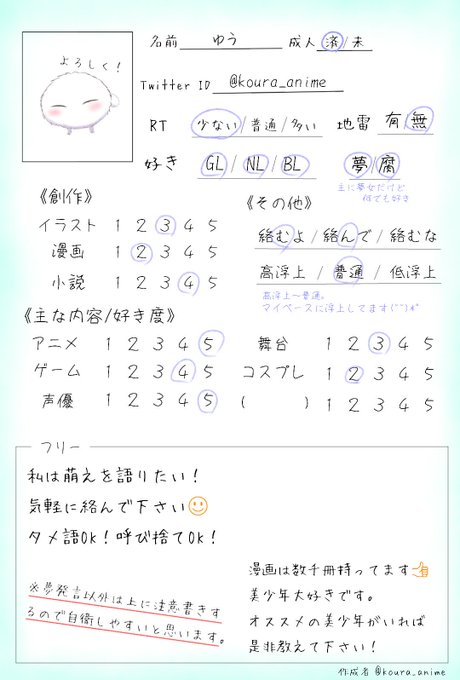 よろしく!
名前 ゆう 成人 済/未
Twitter ID @koura_anime
RT 少ない/普通/多い 地雷 有/無
好き GL/NL/BL 夢/腐
主に夢女だけど
何でも好き
《創作》
イラスト 1 2 3 4 5
漫画 1 2 3 4 5
小説 1 2 3 4 5
《その他》
絡むよ/絡んで/絡むな
高浮上/普通/低浮上
高浮上〜普通。
マイペースに浮上してます(˘˘)*
《主な内容/好き度》
アニメ 1 2 3 4 5
ゲーム 1 2 3 4 5
声優 1 2 3 4 5
舞台 1 2 3 4 5
コスプレ 1 2 3 4 5
( ) 1 2 3 4 5
フリー
私は萌えを語りたい!
気軽に絡んで下さい
タメ語OK!呼び捨てOK!
※夢発言以外は上に注意書きす
るので自衛しやすいと思います。
漫画は数千冊持ってます
美少年大好きです。
オススメの美少年がいれば
是非教えて下さい!
作成者 @koura_anime